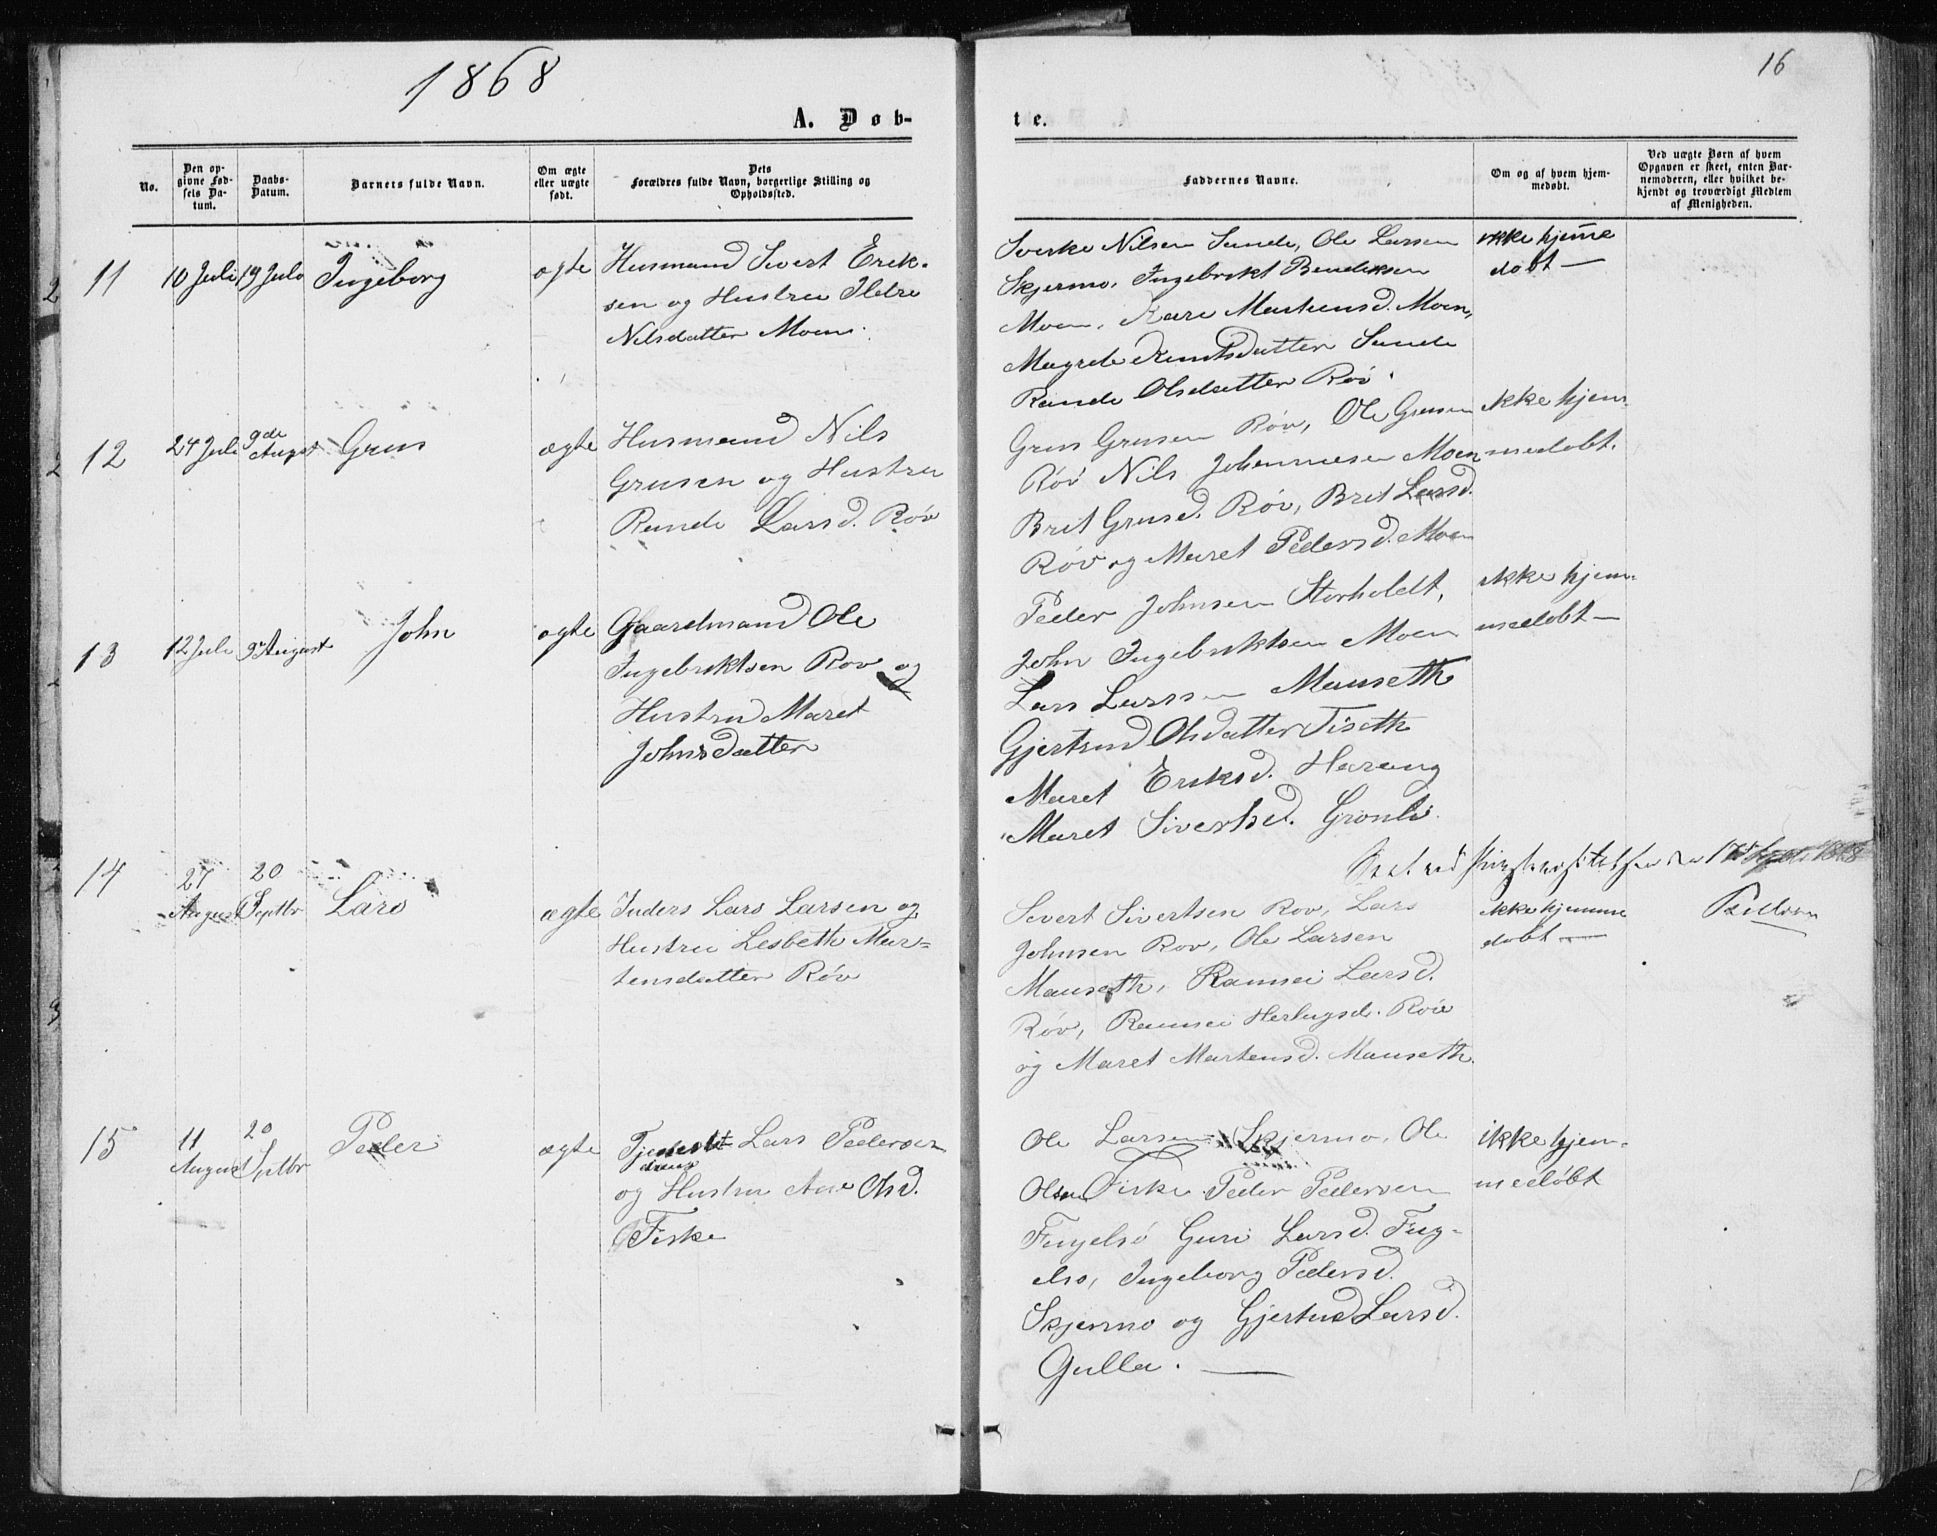 1868
16
A. Døb-
te.
No.
Den op-
givne Fød-
sels Da-
tum.
Daabs-
Datum.
Barnets fulde Navn.
Om ægte
eller uægte
født.
Dets
Forældres fulde Navn, borgerlige Stilling og
Opholdssted.
Faddernes Navne.
Om og af hvem hjem-
medøbt.
Ved uægte Børn af hvem
Opgaven er skeet, enten Bar-
nemoderen, eller hvilket be-
kjendt og troværdigt Medlem
af Menigheden.
11
10 Juli
19 Juli
Ingeborg
ægte
Husmand Sivert Erik-
sen og Hustru Ildre
Nilsdatter Moen.
Sverke Nilsen Sande, Ole Larsen
Skjermo, Ingebrikt Bendiksen
Moen, Kari Martensd. Moen,
Magrete Knutsdatter Sande
Rande Olsdatter Røv.
ikke hjemme
døbt —
12
24 Juli
9de
August
Grus
ægte
Husmand Nils
Grusen og Hustru
Rande Larsd. Røv
Grus Grusen Røv, Ole Grusen
Røv Nils Johannesen Moen
Brit Grusd. Røv, Brit Larsd.
Røv og Maret Pedersd. Moen
ikke hjem-
medøbt.
13
12 Juli
9 August
John
ægte
Gaardmand Ole
Ingebriktsen Røv og
Hustru Maret
Johnsdatter
Peder Johnsen Storholdt,
John Ingebriktsen Moen
Lars Larssen Mauseth
Gjertrud Olsdatter Tiseth
Maret Eriksd. Harang
Maret Sivertsd. Grønli
ikke hjem-
medøbt —
14
27
August
20
Septbr
Lars
ægte
Inders Lars Larsen og
Hustru Lesbeth Mar-
tensdatter Røv
Sivert Sivertsen Røv, Lars
Johnsen Røv, Ole Larsen
Mauseth, Ramsei Larsd.
Røv, Ramsei Herlugsd. Røv
og Maret Martensd. Mauseth.
ikke hjemme
døbt —
15
11
August
20
Septbr
Peder
ægte
Lars Pedersen
og Hustru Ane Olsd.
Fiske
Ole Larsen Skjermo, Ole
Olsen Fiske Peder Pedersen
Fugelsø Guri Larsd. Fug-
elsø, Ingeborg Pedersd.
Skjermo og Gjertrud Larsd.
Gulla. —
ikke hjem-
medøbt